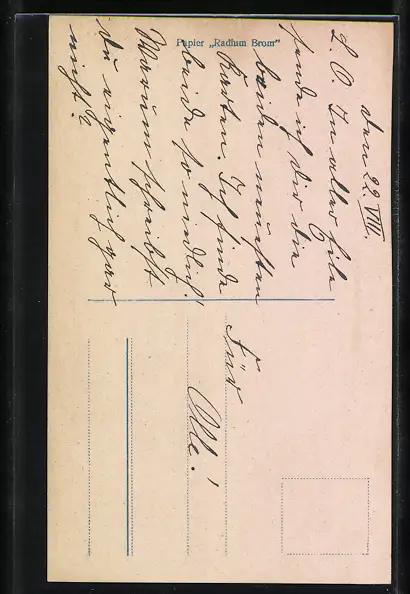 Papier „Radium Brom"
den 22. VIII.
L. O. In aller Eile
sende ich dir die
beiden neusten
Karten. Ich finde
beide so niedlich!
Warum schreibst
du eigentlich gar
nicht?
Für
Olle!